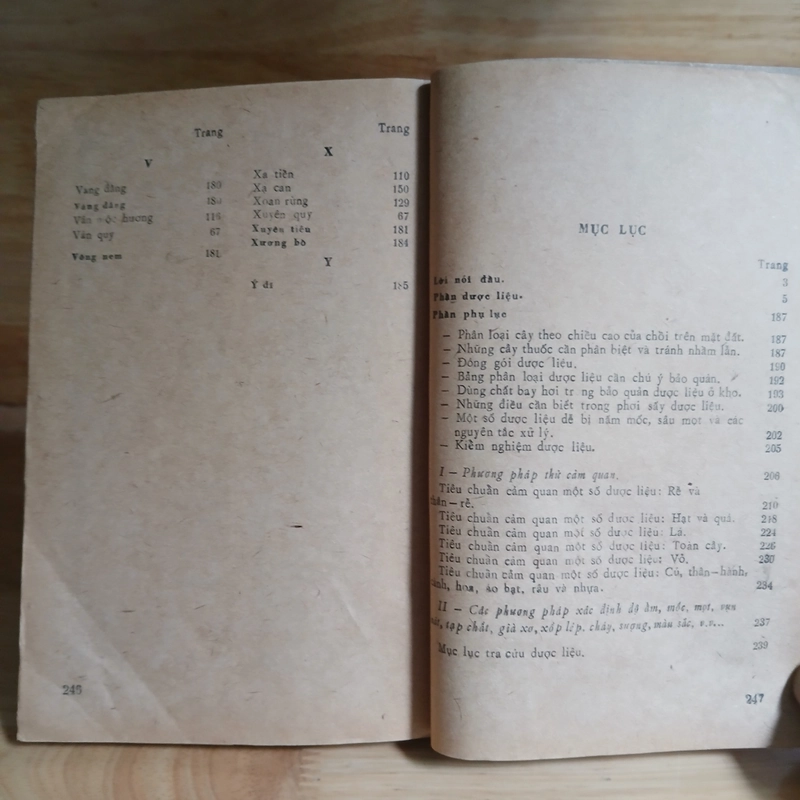 Trang
V
Vang đằng 180
Vàng đắng 180
Vân mộc hương 116
Vân quy 67
Vông nem 181
Trang
X
Xa tiền 110
Xạ can 150
Xoan rừng 129
Xuyên quy 67
Xuyên tiêu 181
Xương bồ 184
Y
Ý dĩ 185
246
MỤC LỤC
Trang
Lời nói đầu. 3
Phần dược liệu. 5
Phần phụ lục 187
— Phân loại cây theo chiều cao của chồi trên mặt đất. 187
— Những cây thuốc cần phân biệt và tránh nhầm lẫn. 187
— Đóng gói dược liệu. 190
— Bảng phân loại dược liệu cần chú ý bảo quản. 192
— Dùng chất bay hơi tr ng bảo quản dược liệu ở kho. 193
— Những điều cần biết trong phơi sấy dược liệu. 200
— Một số dược liệu dễ bị nấm mốc, sâu mọt và các
nguyên tắc xử lý. 202
— Kiểm nghiệm dược liệu. 205
I — Phương pháp thử cảm quan. 206
Tiêu chuẩn cảm quan một số dược liệu: Rễ và
thân—rễ. 210
Tiêu chuẩn cảm quan một số dược liệu: Hạt và quả. 218
Tiêu chuẩn cảm quan một số dược liệu: Lá. 224
Tiêu chuẩn cảm quan một số dược liệu: Toàn cây. 226
Tiêu chuẩn cảm quan một số dược liệu: Vỏ. 230
Tiêu chuẩn cảm quan một số dược liệu: Củ, thân—hành,
cành, hoa, áo bạt, râu và nhựa. 234
II — Các phương pháp xác định độ ẩm, mốc, mọt, vụn
nát, tạp chất, già xơ, xốp lép, cháy, tượng, màu sắc, v.v... 237
Mục lục tra cứu dược liệu. 239
247